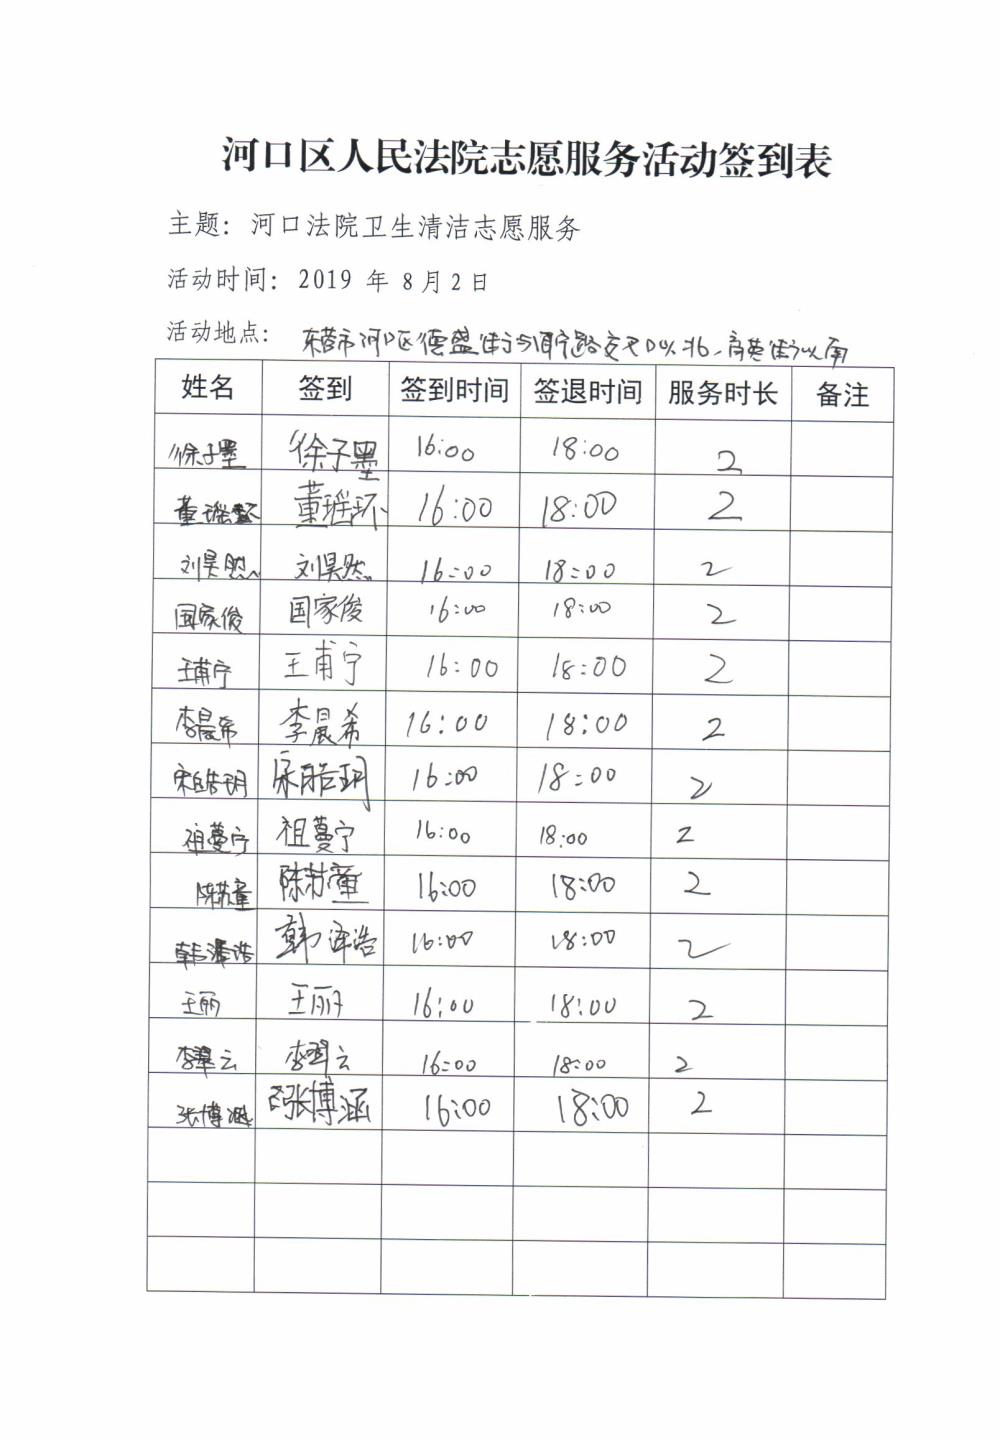 河口区人民法院志愿服务活动签到表
主题：河口法院卫生清洁志愿服务
活动时间：2019 年 8月2日
活动地点：东营市河口区德盛街与宁路交叉口以北，育英街以南
姓名 签到 签到时间 签退时间 服务时长 备注
徐子墨 徐子墨 16:00 18:00 2
董瑶环 董瑶环 16:00 18:00 2
刘昊然 刘昊然 16:00 18:00 2
国家俊 国家俊 16:00 18:00 2
王甫宁 王甫宁 16:00 18:00 2
李晨希 李晨希 16:00 18:00 2
宋皓玥 宋皓玥 16:00 18:00 2
祖蔓宁 祖蔓宁 16:00 18:00 2
陈苏童 陈苏童 16:00 18:00 2
韩泽浩 韩泽浩 16:00 18:00 2
王丽 王丽 16:00 18:00 2
李翠云 李翠云 16:00 18:00 2
张博涵 张博涵 16:00 18:00 2